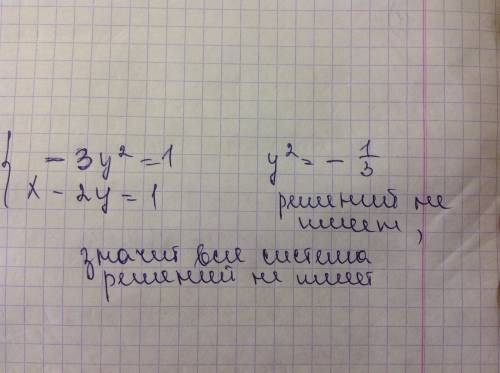 { - 3y² = 1
x - 2y = 1
y² = - 1/3
решений не
имеет,
значит вся система
решений не имеет